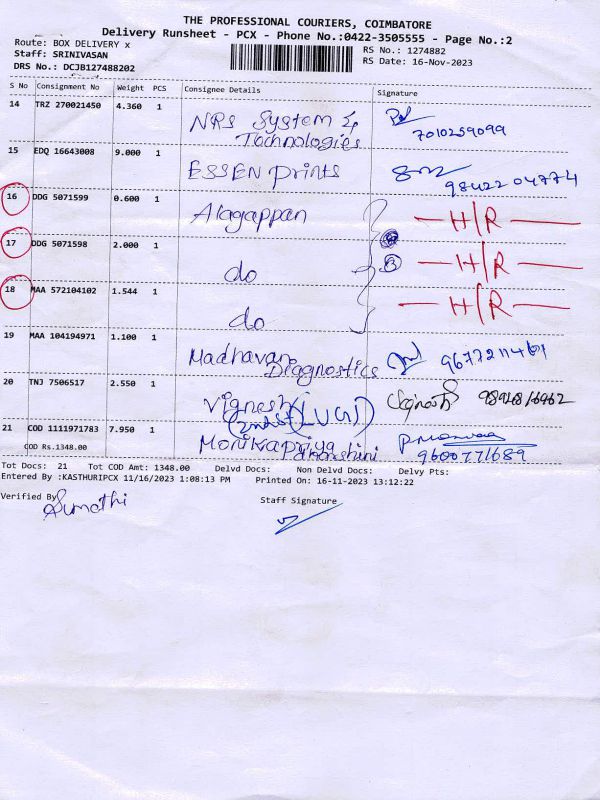 THE PROFESSIONAL COURIERS, COIMBATORE
Delivery Runsheet - PCX - Phone No.:0422-3505555 - Page No.:2
Route: BOX DELIVERY x
Staff: SRINIVASAN
DRS No.: DCJB127488202
RS No.: 1274882
RS Date: 16-Nov-2023
S No Consignment No Weight PCS Consignee Details Signature
14 TRZ 270021450 4.360 1 NRS System & Technologies 7010259099
15 EDQ 16643008 9.000 1 ESSEN Prints 9842204774
16 DDG 5071599 0.600 1 Alagappan H/R
17 DDG 5071598 2.000 1 do 3 H/R
18 MAA 572104102 1.544 1 do H/R
19 MAA 104194971 1.100 1 Madhavan Diagnostics 9677211461
20 TNJ 7506517 2.550 1 Vignesh (LUGI)
21 COD 1111971783 7.950 1 Monikapriya 9600771689
COD Rs.1348.00
Tot Docs: 21 Tot COD Amt: 1348.00 Delvd Docs: Non Delvd Docs: Delvy Pts:
Entered By :KASTHURIPCX 11/16/2023 1:08:13 PM Printed On: 16-11-2023 13:12:22
Verified By Sumathi
Staff Signature